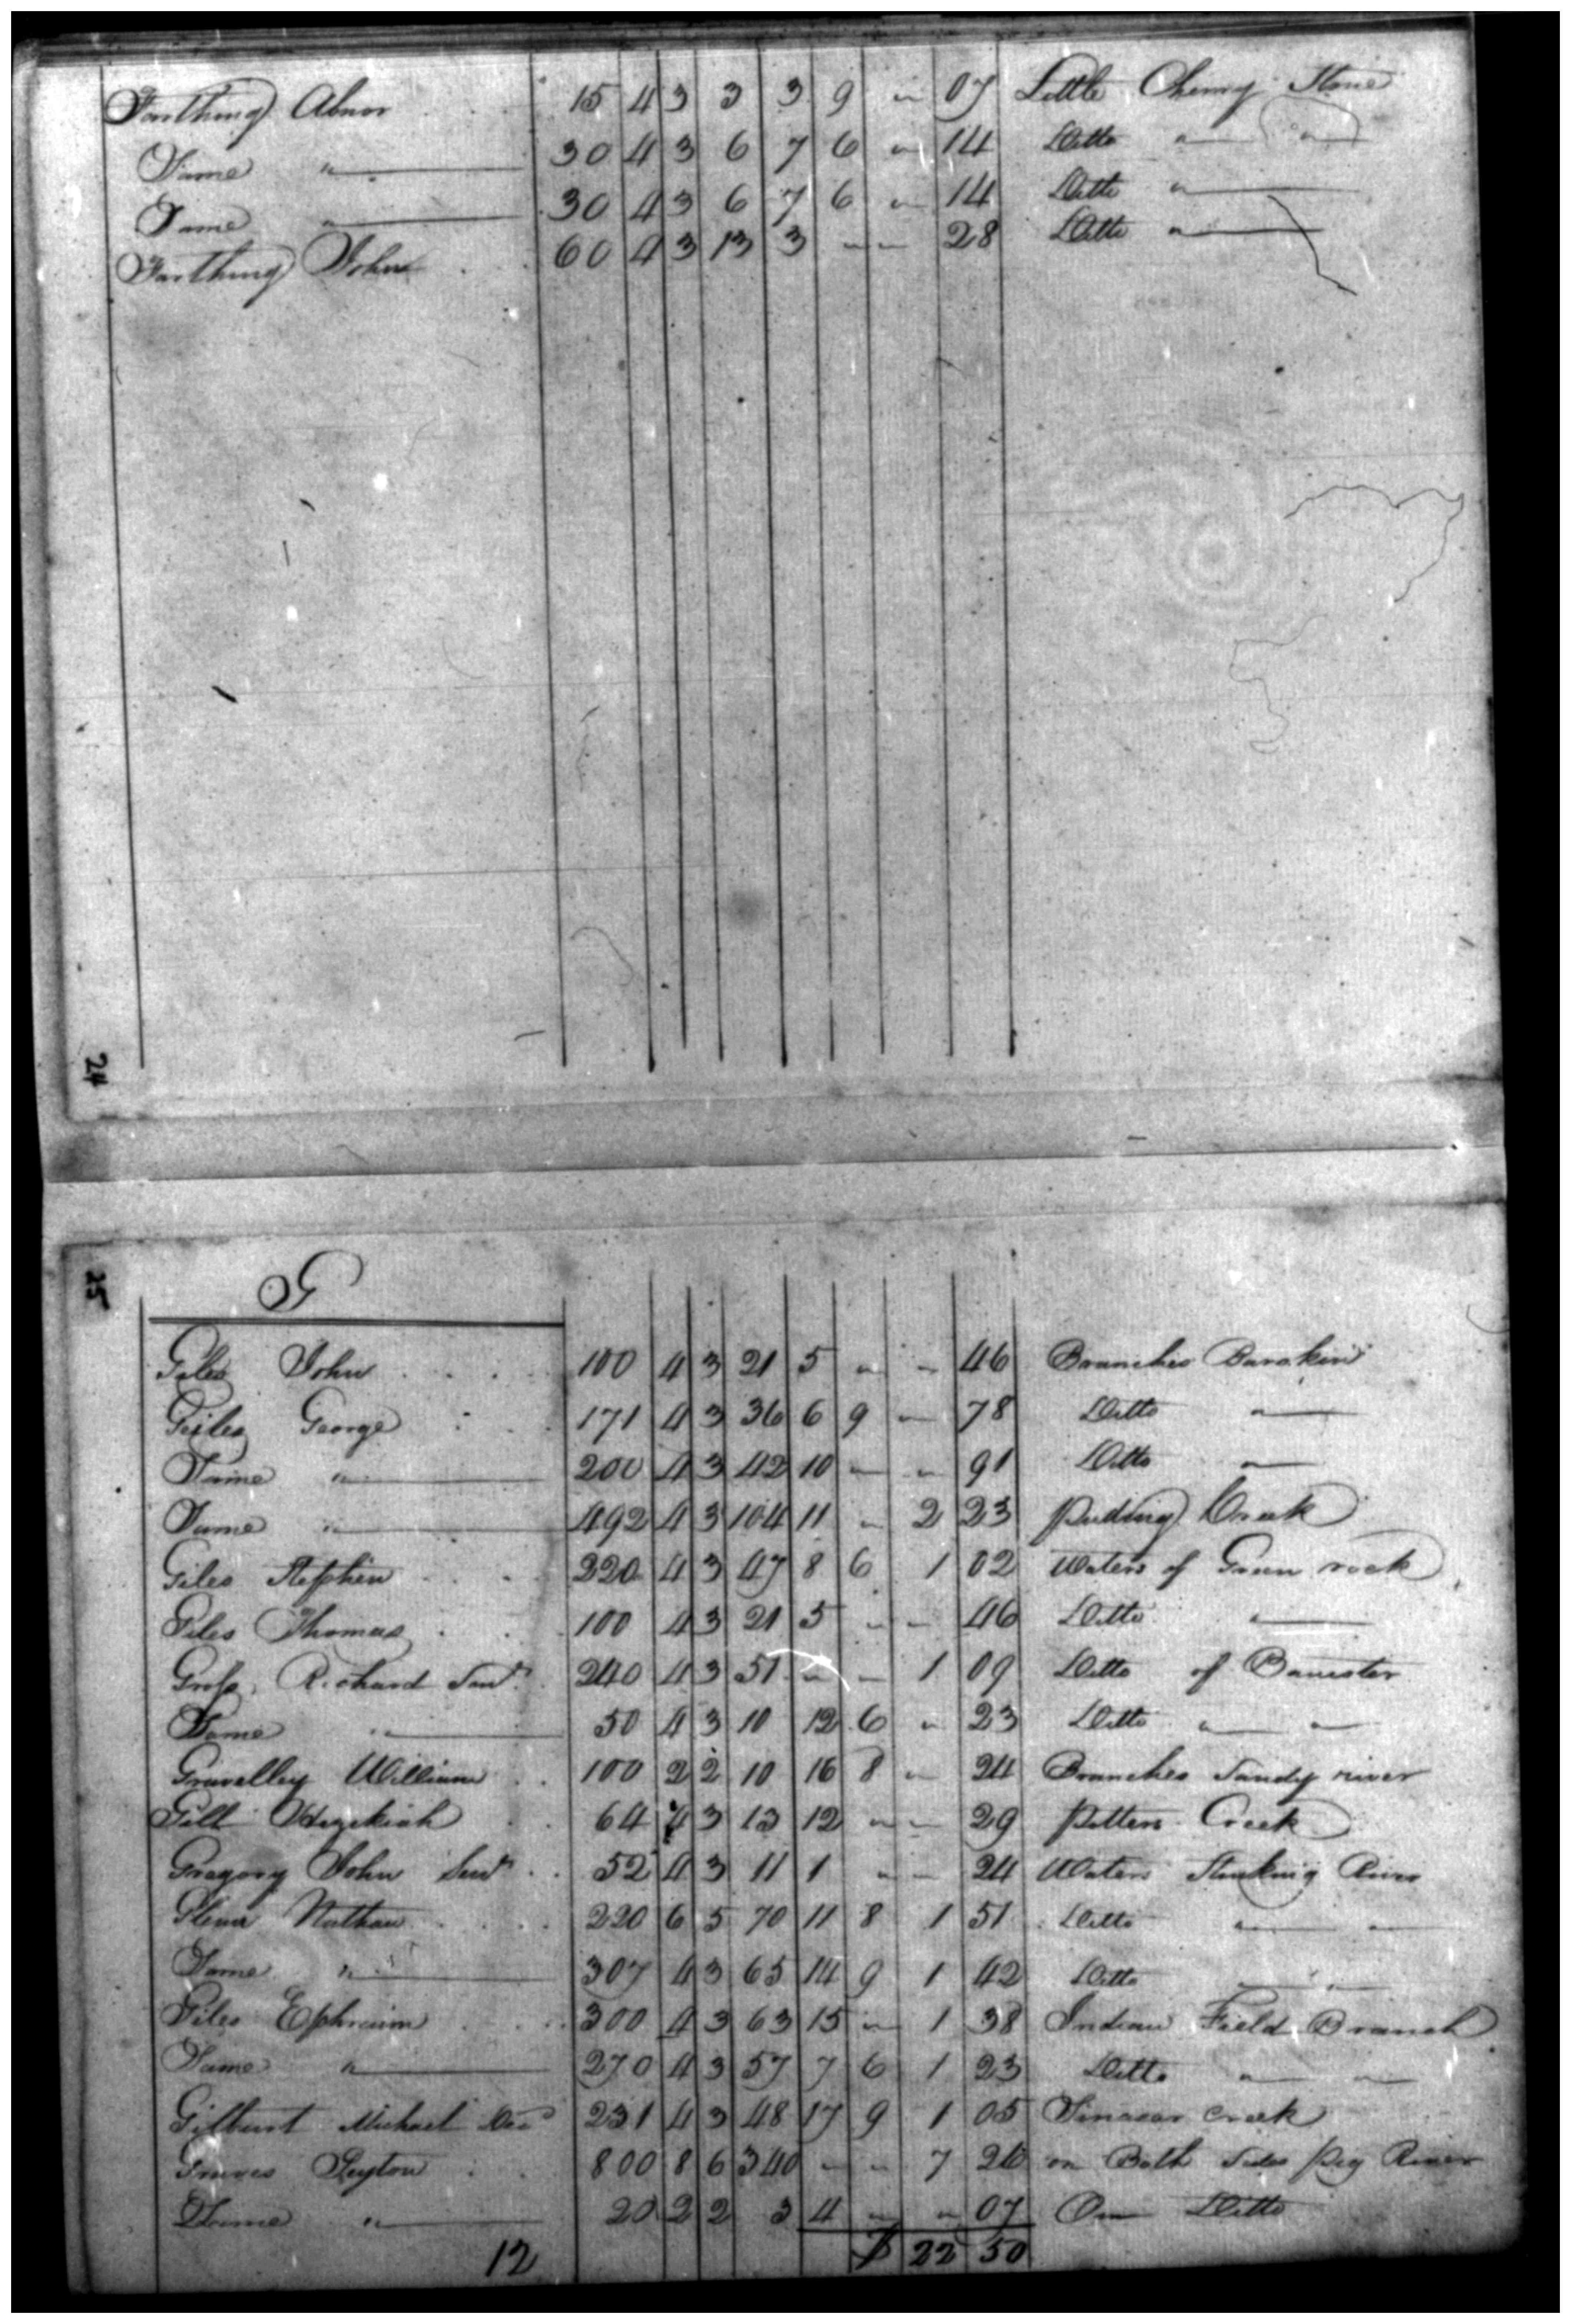 Farthing Abner 15 4 3 3 3 9 " 07 Little Cherry Stone
Same " 30 4 3 6 7 6 " 14 Ditto " "
Same " 30 4 3 6 7 6 " 14 Ditto "
Farthing John 60 4 3 13 3 " " 28 Ditto "
24
25
G
Giles John 100 4 3 21 5 " " 46 Branches
Giles George 171 4 3 36 6 9 " 78 Ditto "
Same " 200 4 3 42 10 " " 91 Ditto "
Same " 492 4 3 104 11 " 2 23 Puding Creek
Giles Stephen 220 4 3 47 8 6 1 02 Waters of Green rock
Giles Thomas 100 4 3 21 5 " " 46 Ditto "
Gross, Richard Senr. 240 4 3 51 " " 1 09 Ditto of Banister
Same " 50 4 3 10 12 6 " 23 Ditto " "
Gravelley William 100 2 2 10 16 8 " 24 Branches Sandy river
Gill Hezekiah 64 4 3 13 12 " " 29 Potters Creek
Gregory John Senr. 52 4 3 11 1 " " 24 Waters Stinking River
Nathan 220 6 5 70 11 8 1 51 Ditto " "
Same " 307 4 3 65 14 9 1 42 Ditto " "
Giles Ephraim 300 4 3 63 15 " 1 38 Indian Field Branch
Same " 270 4 3 57 7 6 1 23 Ditto " "
Gilburt Michael 231 4 3 48 17 9 1 05 creek
Graves Peyton 800 8 6 340 " " 7 26 on Both Sides Pig River
Same " 20 2 2 3 4 " " 07 On Ditto
12 $ 22 50